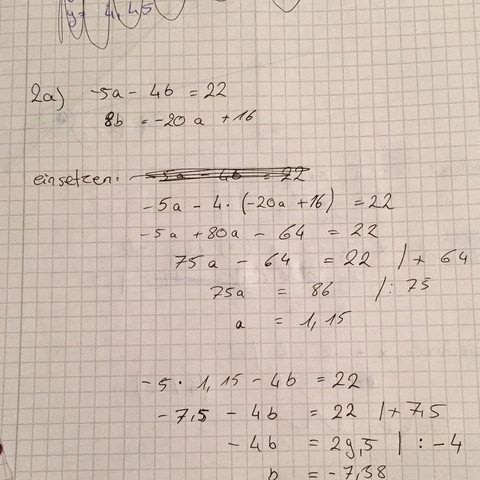 y = 4,45
2a) -5a - 4b = 22
8b = -20a + 16
einsetzen: -5a - 4b = 22
-5a - 4 · (-20a + 16) = 22
-5a + 80a - 64 = 22
75a - 64 = 22 |+ 64
75a = 86 |: 75
a = 1,15
-5 · 1,15 - 4b = 22
-7,5 - 4b = 22 |+ 7,5
-4b = 29,5 | : -4
b = -7,38